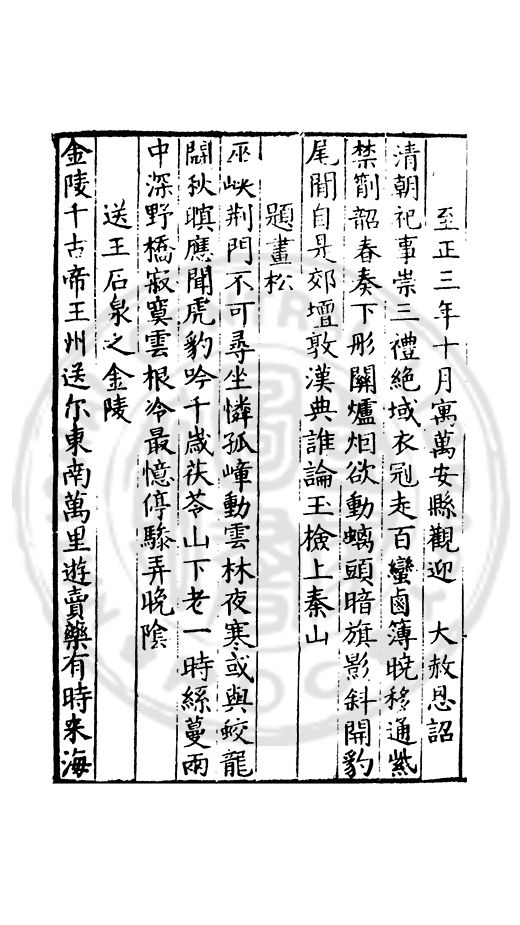 至正三年十月寓萬安縣觀迎 大赦恩詔
清朝祀事崇三禮絶域衣冠走百蠻鹵簿晩移通紫
禁簫韶春奏下彤關爐烟欲動螭頭暗旗影斜開豹
尾閒自是郊壇敦漢典誰論王檢上泰山
題畫松
巫峽荆門不可尋坐憐孤嶂動雲林夜寒或與蛟龍
鬭秋暝應聞虎豹吟千歳茯苓山下老一時絲蔓雨
中深野橋寂寞雲根冷最憶停驂弄晚陰
送王石泉之金陵
金陵千古帝王州送尔東南萬里遊賣藥有時来海